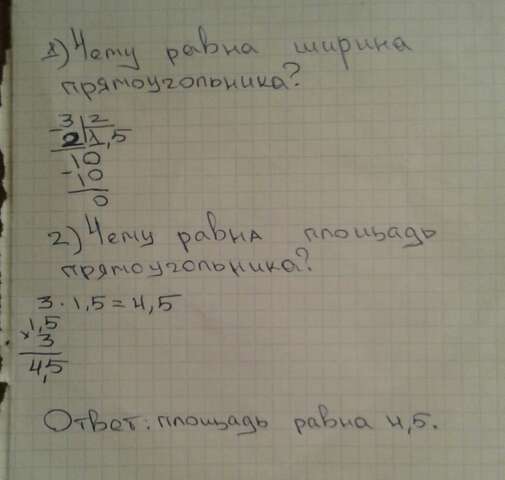 1) Чему равна ширина
прямоугольника?
3 | 2
- 2 | 1,5
10
- 10
0
2) Чему равна площадь
прямоугольника?
3 · 1,5 = 4,5
1,5
× 3
4,5
Ответ: площадь равна 4,5.